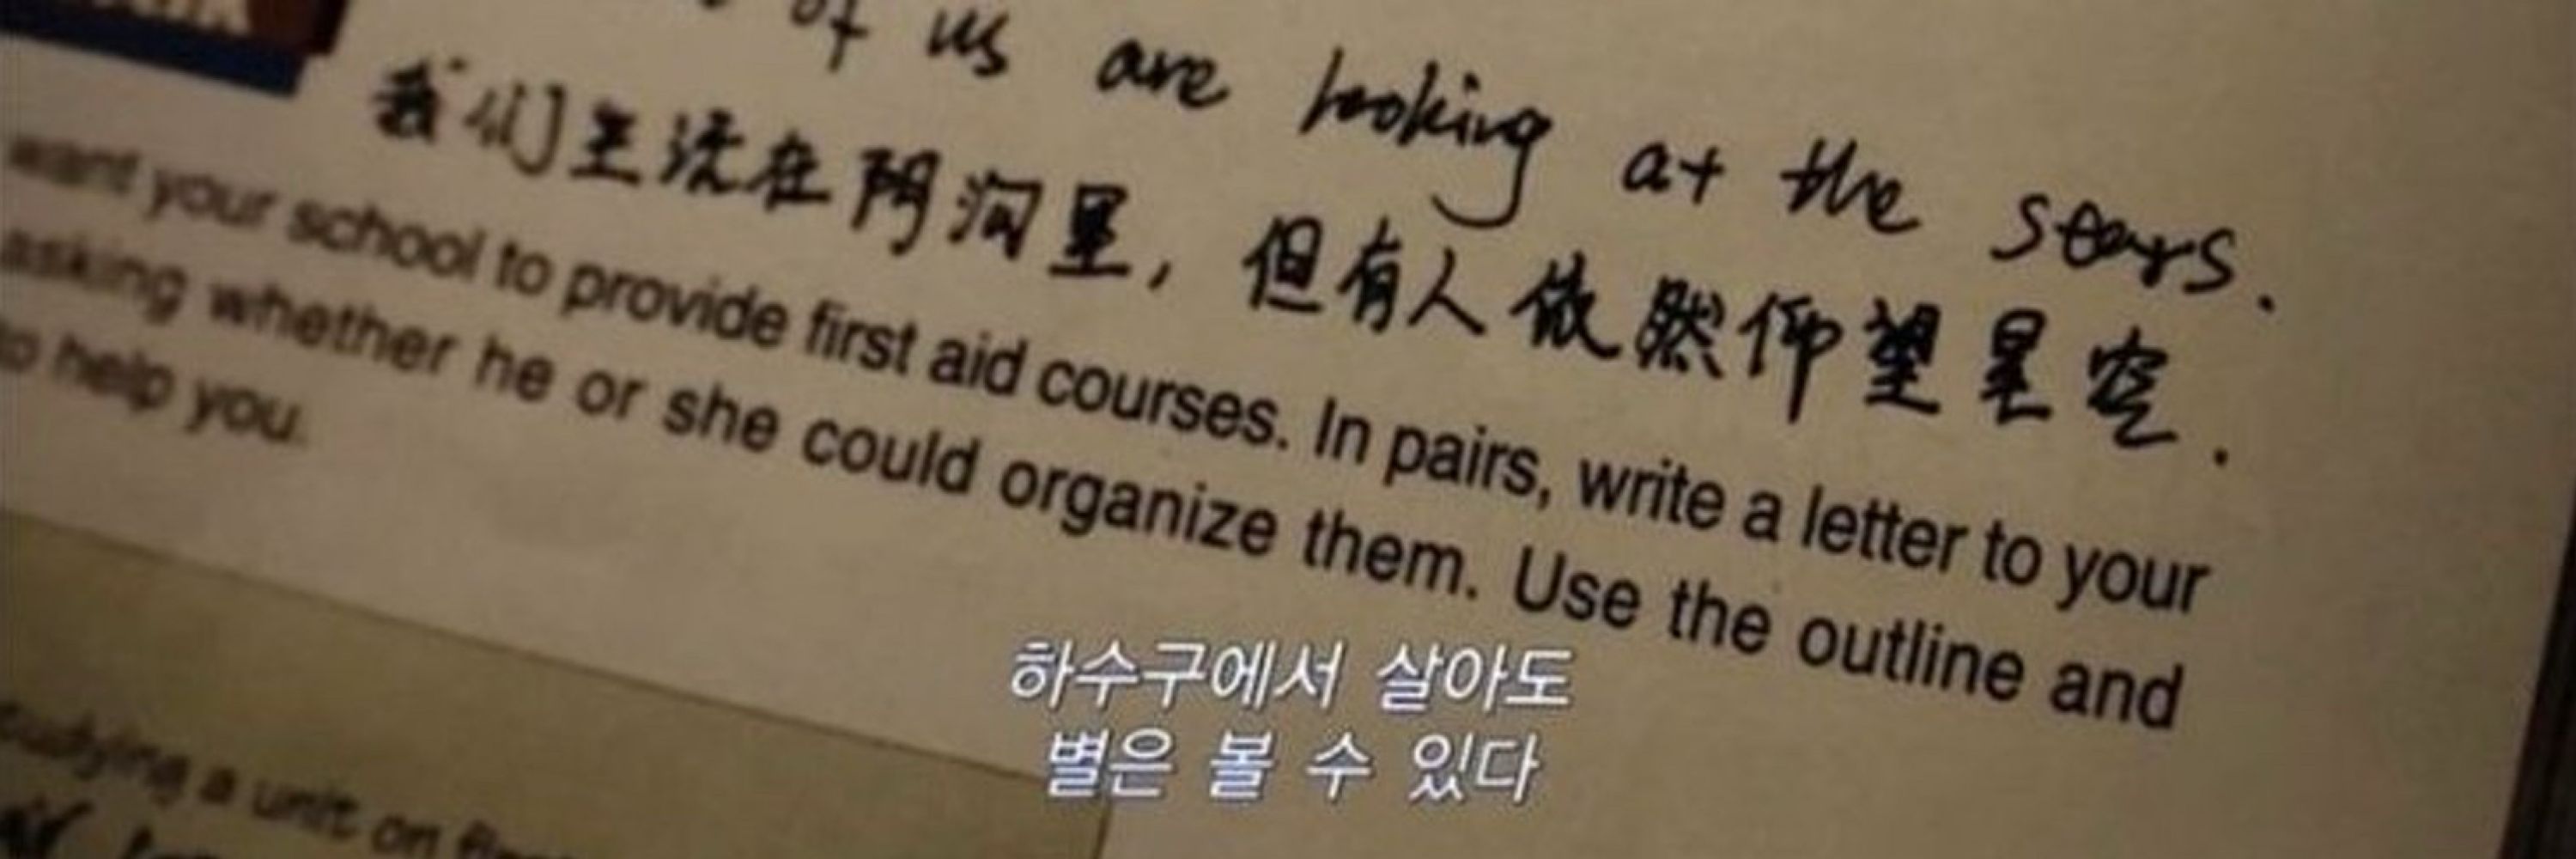 of us are looking at the stars.
我们生活在阴沟里，但有人依然仰望星空.
want your school to provide first aid courses. In pairs, write a letter to your
asking whether he or she could organize them. Use the outline and
to help you.
하수구에서 살아도
별은 볼 수 있다
studying a unit on